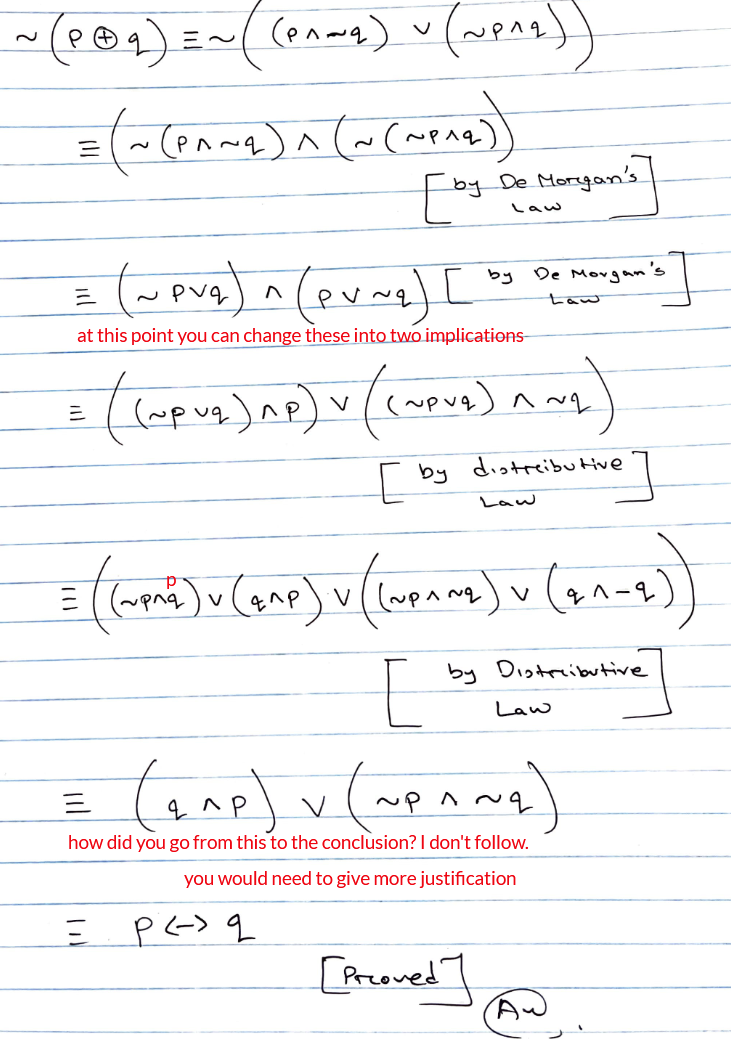 ~(p ⊕ q) ≡ ~((p ∧ ~q) ∨ (~p ∧ q))
≡ (~(p ∧ ~q) ∧ (~(~p ∧ q))
[by De Morgan's
Law]
≡ (~p ∨ q) ∧ (p ∨ ~q) [by De Morgan's
Law]
at this point you can change these into two implications
≡ ((~p ∨ q) ∧ p) ∨ ((~p ∨ q) ∧ ~q)
[by distributive
Law]
p
≡ ((~p ∧ q) ∨ (q ∧ p) ∨ ((~p ∧ ~q) ∨ (q ∧ -q))
[by Distributive
Law]
≡ (q ∧ p) ∨ (~p ∧ ~q)
how did you go from this to the conclusion? I don't follow.
you would need to give more justification
≡ p <-> q
[Proved]